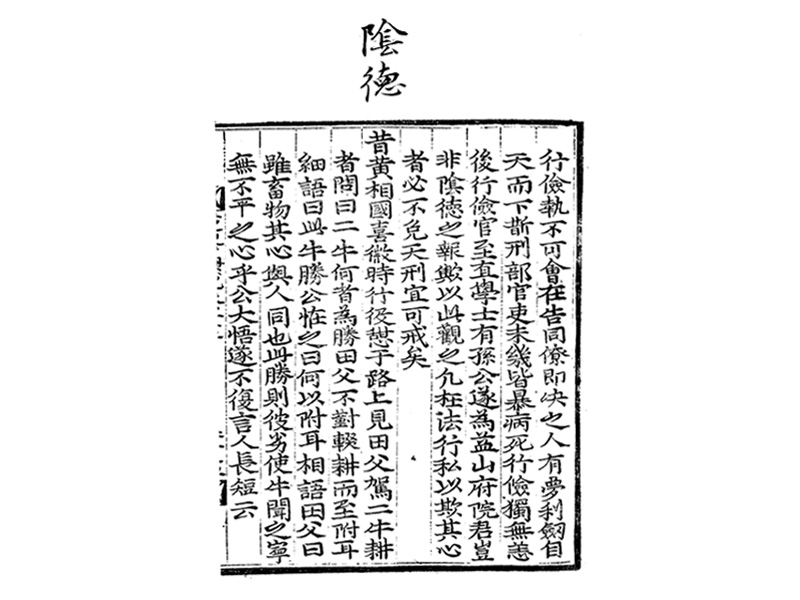 陰德
行儉執不可會在告同僚即决之人有夢利劒自
天而下斷刑部官吏未幾皆暴病死行儉獨無恙
後行儉官至直學士有孫公遂為益山府院君豈
非陰德之報歟以此觀之凢枉法行私以欺其心
者必不免天刑宜可戒矣
昔黃相國喜微時行役憇于路上見田父駕二牛耕
者問曰二牛何者為勝田父不對輟耕而至附耳
細語曰此牛勝公恠之曰何以附耳相語田父曰
雖畜物其心與人同也此勝則彼劣使牛聞之寧
無不平之心乎公大悟遂不復言人長短云